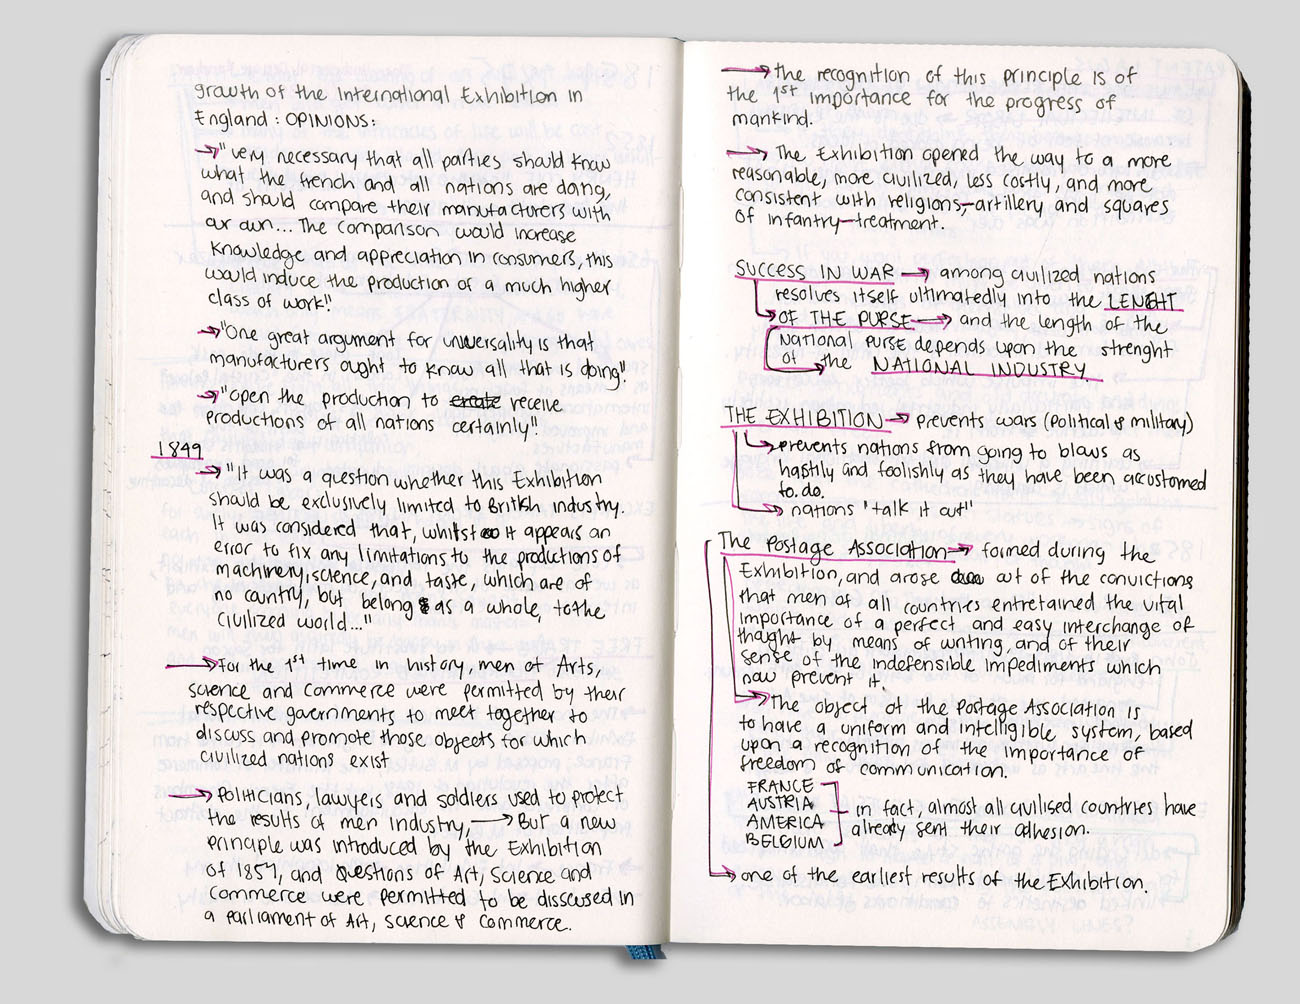 growth of the International Exhibition in
England : OPINIONS:
→ "very necessary that all parties should know
what the french and all nations are doing,
and should compare their manufacturers with
our own... The comparison would increase
knowledge and appreciation in consumers, this
would induce the production of a much higher
class of work!"
→ "One great argument for universality is that
manufacturers ought to know all that is doing".
→ "open the production to create receive
productions of all nations certainly".
1849
→ "It was a question whether this Exhibition
should be exclusively limited to British industry.
It was considered that, whilst it appears an
error to fix any limitations to the productions of
machinery, science, and taste, which are of
no country, but belong as a whole, to the
civilized world..."
→ For the 1st time in history, men of Arts,
science and Commerce were permitted by their
respective governments to meet together to
discuss and promote those objects for which
civilized nations exist
→ Politicians, lawyers and soldiers used to protect
the results of men industry, → But a new
principle was introduced by the Exhibition
of 1851, and questions of Art, Science and
Commerce were permitted to be disscused in
a Parliament of Art, Science & Commerce.
→ the recognition of this principle is of
the 1st importance for the progress of
mankind.
→ The Exhibition opened the way to a more
reasonable, more civilized, less costly, and more
consistent with religions, - artillery and squares
of infantry - treatment.
SUCCESS IN WAR → among civilized nations
resolves itself ultimatedly into the LENGHT
OF THE PURSE → and the length of the
National purse depends upon the strenght
of the NATIONAL INDUSTRY.
THE EXHIBITION → prevents wars (political & military)
→ prevents nations from going to blows as
hastily and foolishly as they have been accustomed
to do.
→ nations "talk it out"
The Postage Association → formed during the
Exhibition, and arose out of the convictions
that men of all countries entretained the vital
importance of a perfect and easy interchange of
thought by means of writing, and of their
sense of the indefensible impediments which
now prevent it.
→ The object of the Postage Association is
to have a uniform and intelligible system, based
upon a recognition of the importance of
freedom of communication.
FRANCE
AUSTRIA
AMERICA
BELGIUM
in fact, almost all civilised countries have
already sent their adhesion.
→ one of the earliest results of the Exhibition.